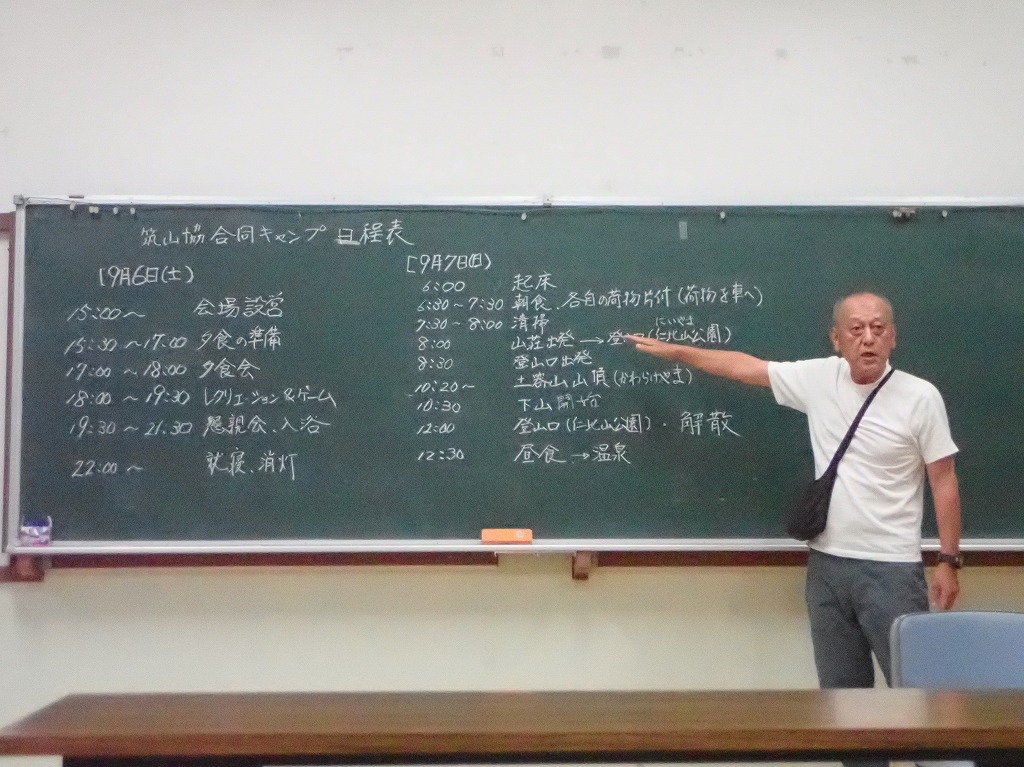 筑山協合同キャンプ日程表
[9月6日(土)
15:00～ 会場設営
15:30～17:00 夕食の準備
17:00～18:00 夕食会
18:00～19:30 レクリエーション&ゲーム
19:30～21:30 懇親会、入浴
22:00～ 就寝、消灯
[9月7日(日)
6:00 起床
6:30～7:30 朝食、各自の荷物片付(荷物を車へ)
7:30～8:00 清掃
にいやま
8:00 山荘出発→登 口(仁北山公園)
8:30 登山口出発
10:20～ 土器山山頂(かわらけやま)
10:30 下山開始
12:00 登山口(仁北山公園)・解散
12:30 昼食→温泉